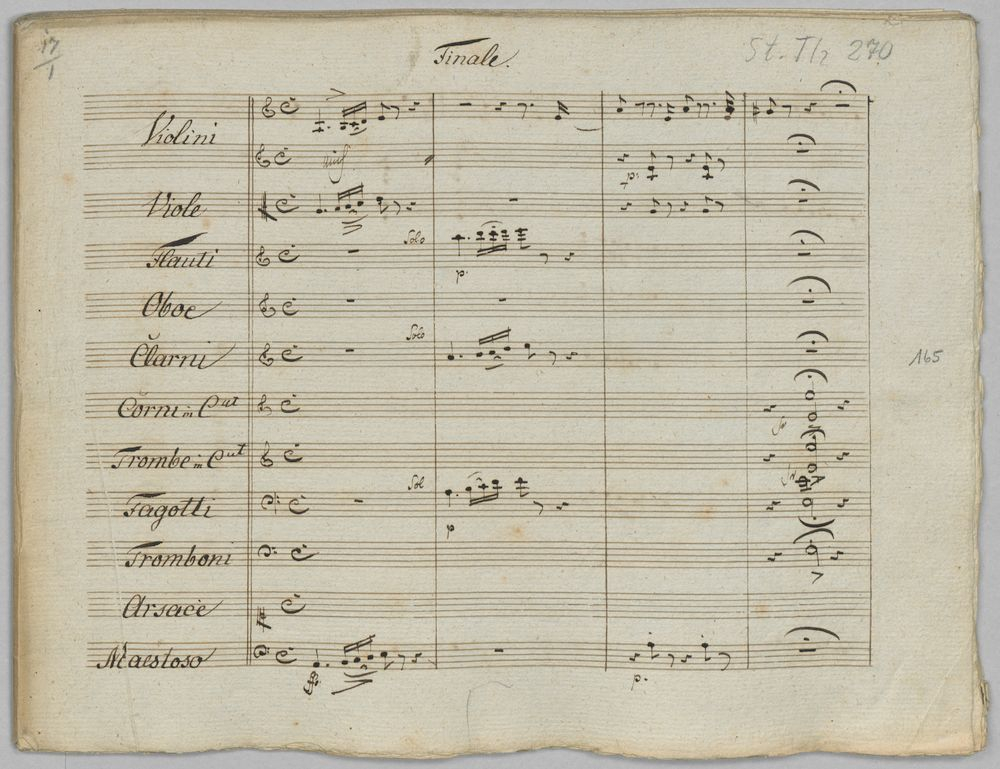 17
1
Finale.
St. Th 270
Violini
unis.
p.
Viole
Solo
Flauti
p.
Oboe
Solo
Clarni
Corni in C ut
Trombe in C ut
Sol
Fagotti
p
Tromboni
Arsace
Maestoso
p.
165